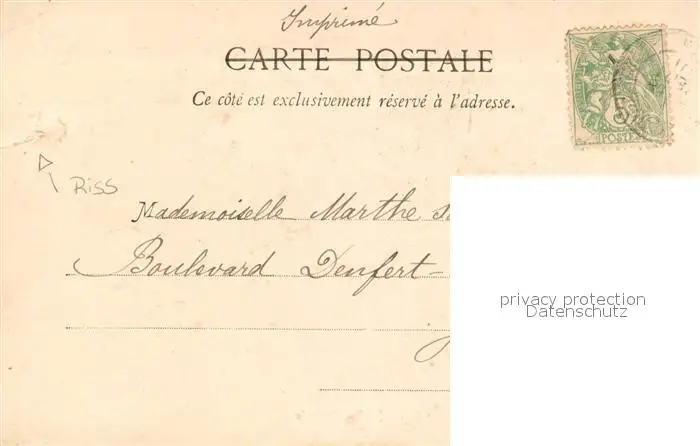 Imprimé
CARTE POSTALE
Ce côté est exclusivement réservé à l'adresse.
Riss
Mademoiselle Marthe
Boulevard Denfert-
privacy protection
Datenschutz
POSTES